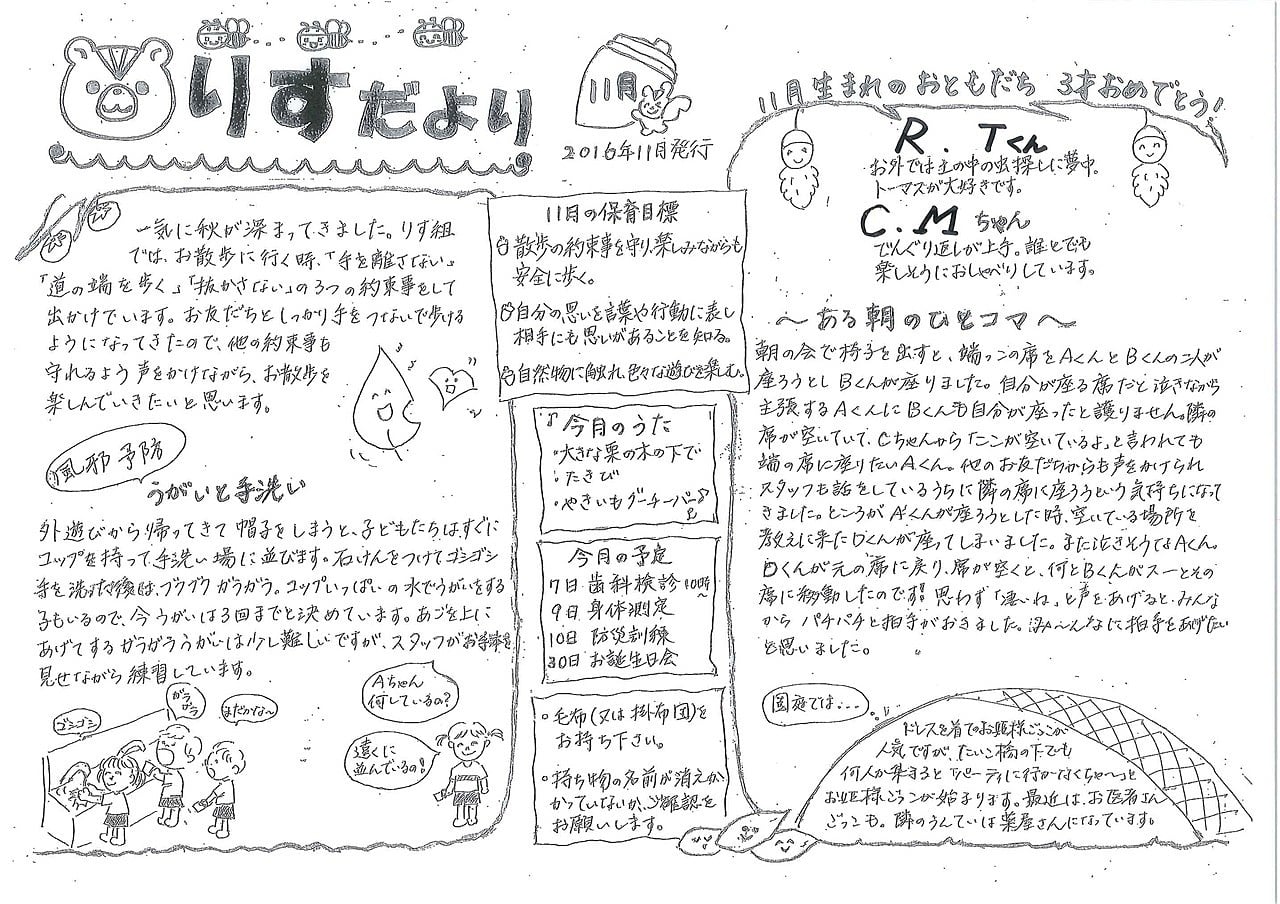 りすだより
11月
2016年11月発行
一気に秋が深まってきました。りす組
では、お散歩に行く時、「手を離さない」
「道の端を歩く」「抜かさない」の3つの約束事をして
出かけています。お友だちとしっかり手をつないで歩ける
ようになってきたので、他の約束事も
守れるよう声をかけながら、お散歩を
楽しんでいきたいと思います。
風邪予防
うがいと手洗い
外遊びから帰ってきて帽子をしまうと、子どもたちはすぐに
コップを持って、手洗い場に並びます。石けんをつけてゴシゴシ
手を洗った後は、ブクブクガラガラ。コップいっぱいの水でうがいをする
子もいるので、今うがいは3回までと決めています。あごを上に
あげてするガラガラうがいは少し難しいですが、スタッフがお手本を
見せながら練習しています。
ゴシゴシ
ガラガラ
まだかな〜
Aちゃん
何しているの?
遠くに
並んでいるの!
11月の保育目標
散歩の約束事を守り、楽しみながらも
安全に歩く。
自分の思いを言葉や行動に表し
相手にも思いがあることを知る。
自然物に触れ、色々な遊びを楽しむ。
♪今月のうた
・大きな栗の木の下で
・たきび
・やきいもグーチーパー♪
今月の予定
7日 歯科検診 10時〜
9日 身体測定
10日 防災訓練
30日 お誕生日会
・毛布(又は掛布団)を
お持ち下さい。
・持ち物の名前が消えか
かっていないか、ご確認を
お願いします。
11月生まれのおともだち 3才おめでとう!
R. Tくん
お外では土の中の虫探しに夢中。
トーマスが大好きです。
C.Mちゃん
でんぐり返しが上手。誰とでも
楽しそうにおしゃべりしています。
〜ある朝のひとコマ〜
朝の会で椅子を出すと、端っこの席をAくんとBくんの二人が
座ろうとしBくんが座りました。自分が座る席だと泣きながら
主張するAくんにBくんも自分が座ったと譲りません。隣の
席が空いていて、Cちゃんから「ここが空いているよ」と言われても
端の席に座りたいAくん。他のお友だちからも声をかけられ
スタッフも話をしているうちに隣の席に座ろうという気持ちになって
きました。ところがAくんが座ろうとした時、空いている場所を
教えに来たDくんが座ってしまいました。また泣きそうなAくん。
Dくんが元の席に戻り、席が空くと、何とBくんがスーとその
席に移動したのです!思わず「凄いね」と声をあげると、みんな
からパチパチと拍手がおきました。みーんなに拍手をあげたい
と思いました。
園庭では...
ドレスを着てのお姫様ごっこが
人気ですが、たいこ橋の下でも
何人か集まると「パーティに行かなくちゃ〜」と
お姫様ごっこが始まります。最近は、お医者さん
ごっこも。隣のうんていは薬屋さんになっています。